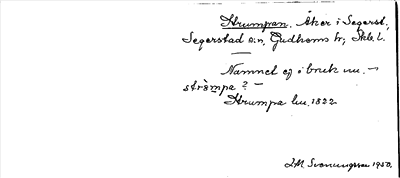 Krumpan. Åker i Segerst.,
Segerstad sn, Gudhems hd, Skbl.
Namnet ej i bruk nu. –
strömpa? –
Krumpa lm. 1822
I.M. Svenungsson 1930.